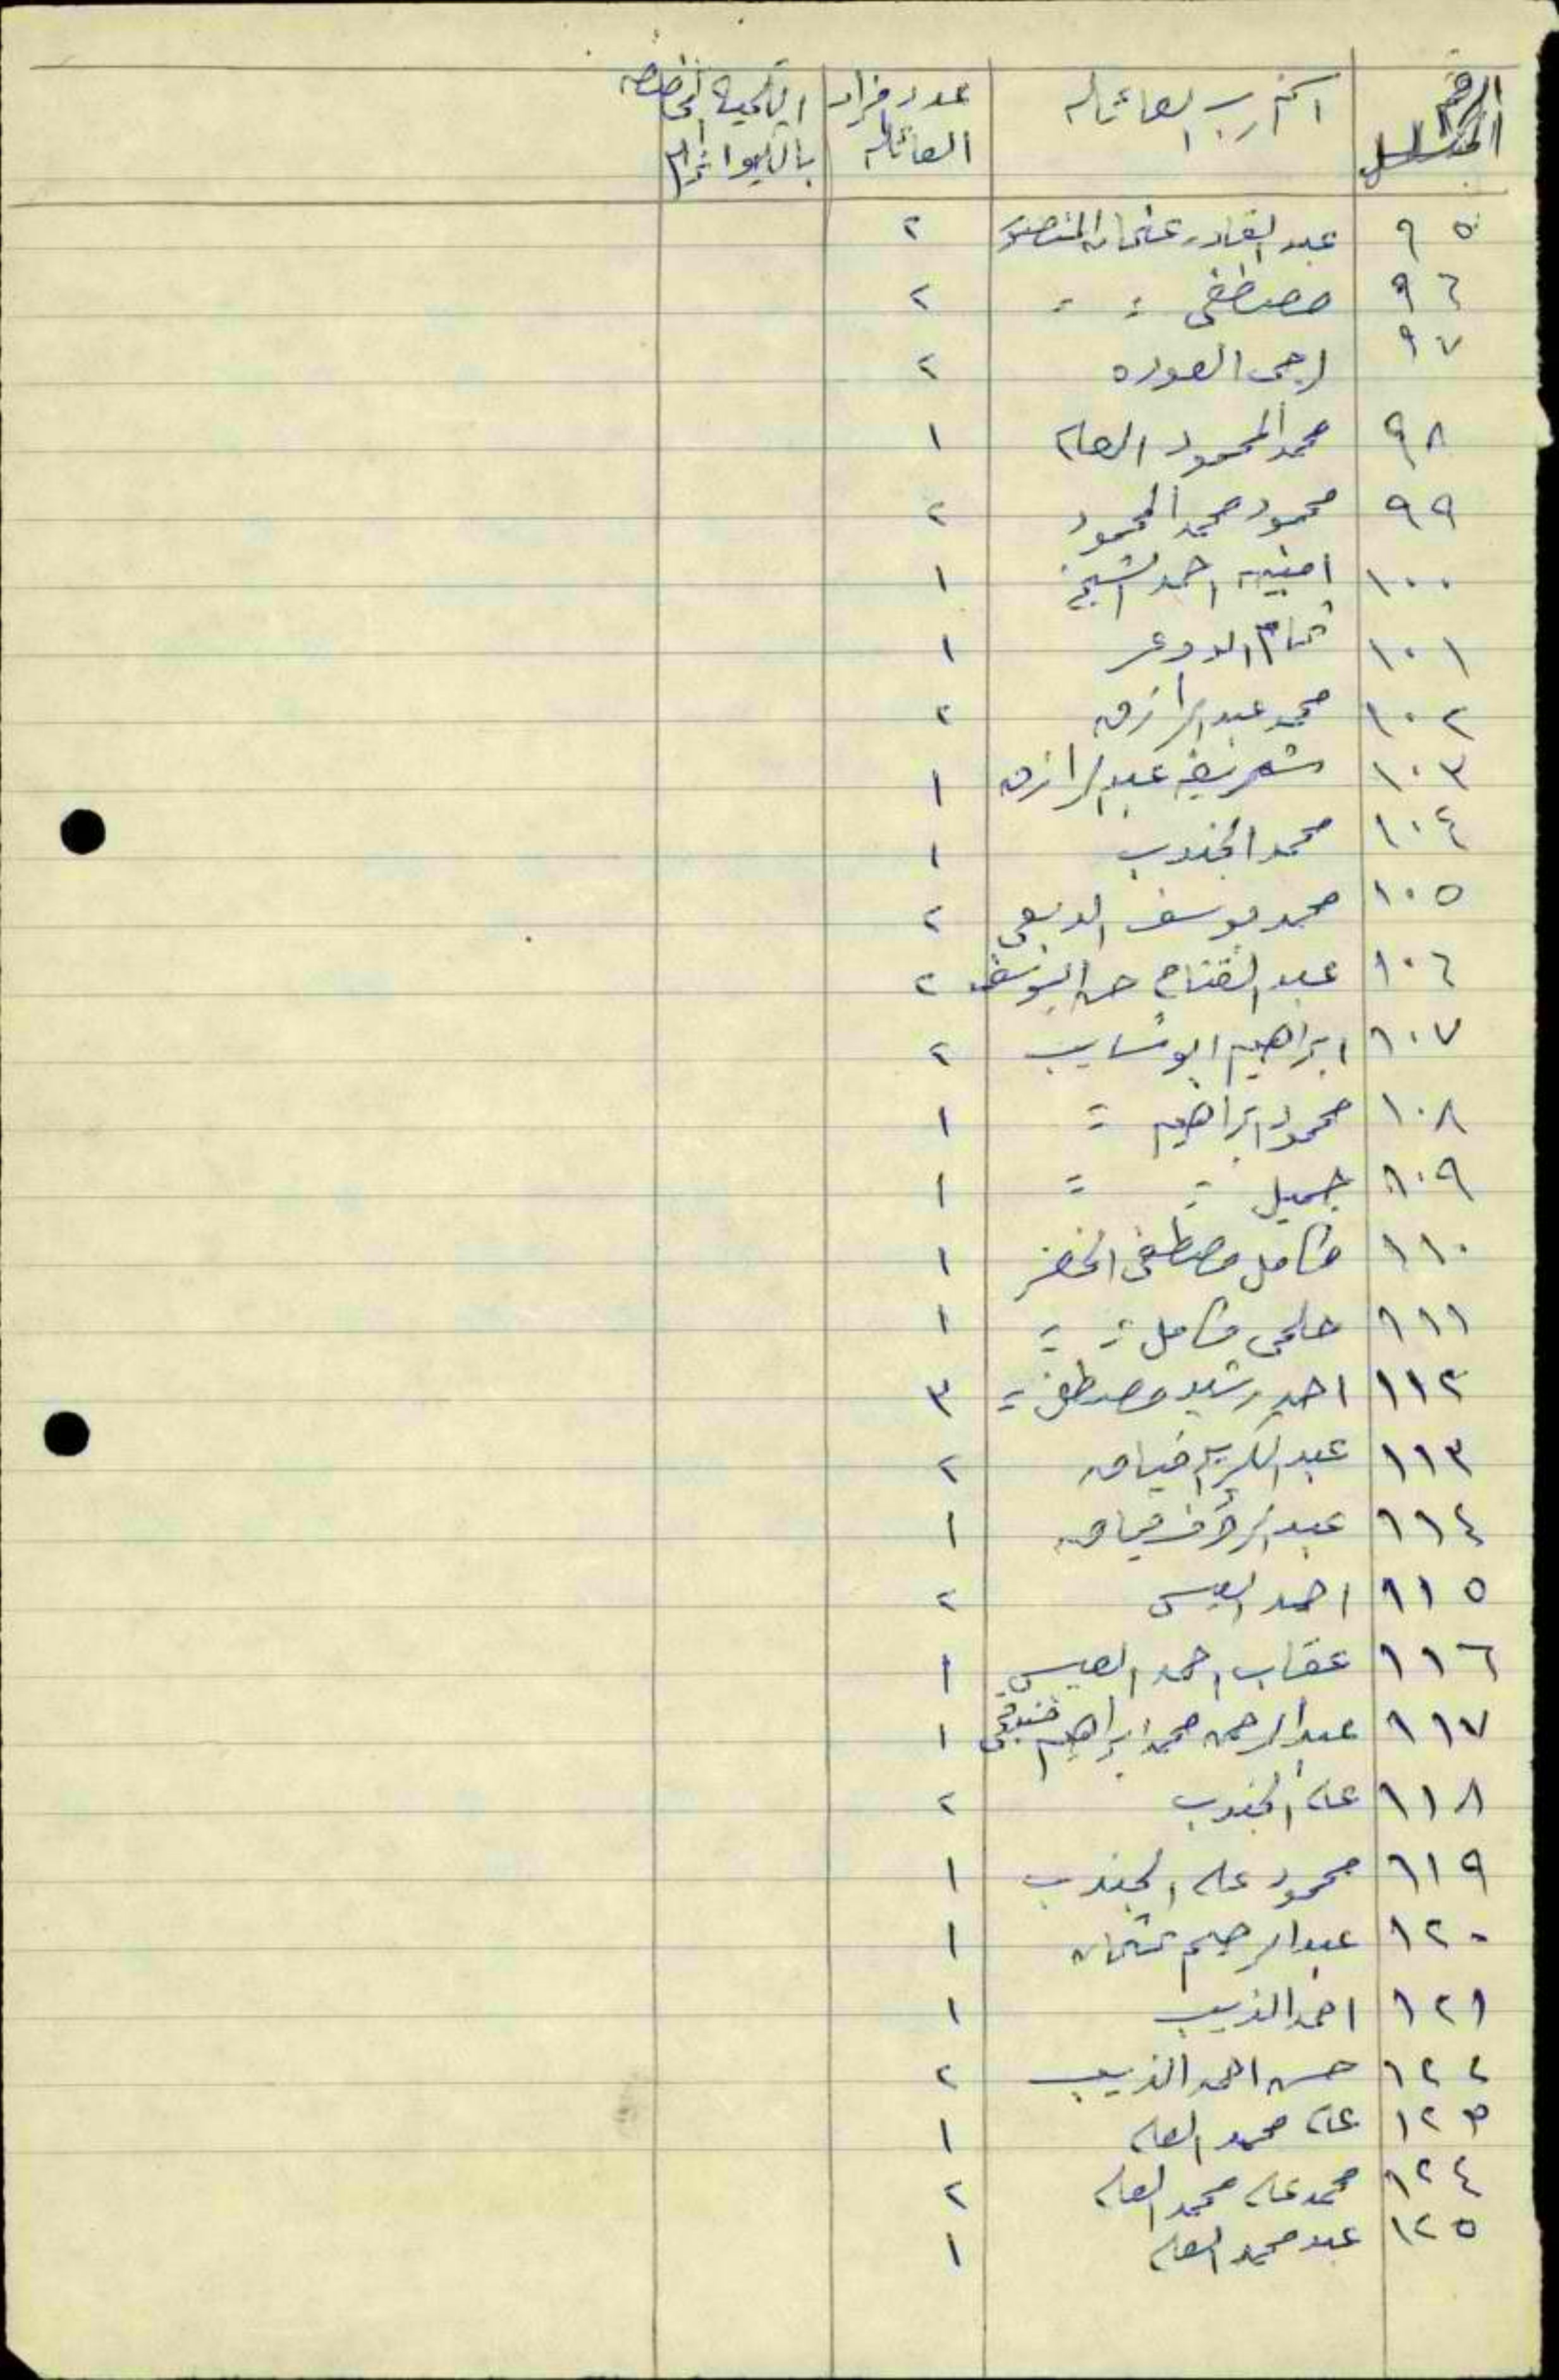 الرقم المتسلسل اسم رب العائله عدد افراد العائله الكمية المخصصه بالكيواغرام
٩٥ عبد القادر عثمان المنصور ٢
٩٦ مصطفى = = ٢
٩٧ راجى العوده ٢
٩٨ محمد المحمود العلي ١
٩٩ محمود محمد المحمود ٢
١٠٠ امينه احمد الشيخ ١
١٠١ تمام ١
١٠٢ محمد عبد الرازق ٢
١٠٣ شريفه عبد الرازق ١
١٠٤ محمد الجندب ١
١٠٥ محمد يوسف الربعي ٢
١٠٦ عبد الفتاح حسن اليوسف ٢
١٠٧ ابراهيم ابو شايب ٢
١٠٨ محمود ابراهيم = ١
١٠٩ جميل = = ١
١١٠ كامل مصطفى الخضر ١
١١١ حلمي كامل = = ١
١١٢ احمد رشيد مصطفى = ٣
١١٣ عبد الكريم ٢
١١٤ عبد الرؤف ١
١١٥ احمد العيسى ٢
١١٦ عقاب احمد العيسى ١
١١٧ عبد الرحمن محمد ابراهيم ١
١١٨ علي الجندب ٢
١١٩ محمود علي الجندب ١
١٢٠ عبد الرحيم عثمان ١
١٢١ احمد الذيب ١
١٢٢ حسن احمد الذيب ٢
١٢٣ علي محمد العلي ١
١٢٤ محمد علي محمد العلي ٢
١٢٥ عبد محمد العلي ١